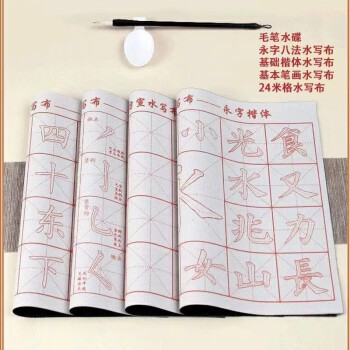 毛笔水碟
永字八法水写布
基础楷体水写布
基本笔画水写布
24米格水写布
写布
写布
室水写布
写布
永字楷体
四
十
东
下
小
光
食
水
又
兆
力
女
山
長